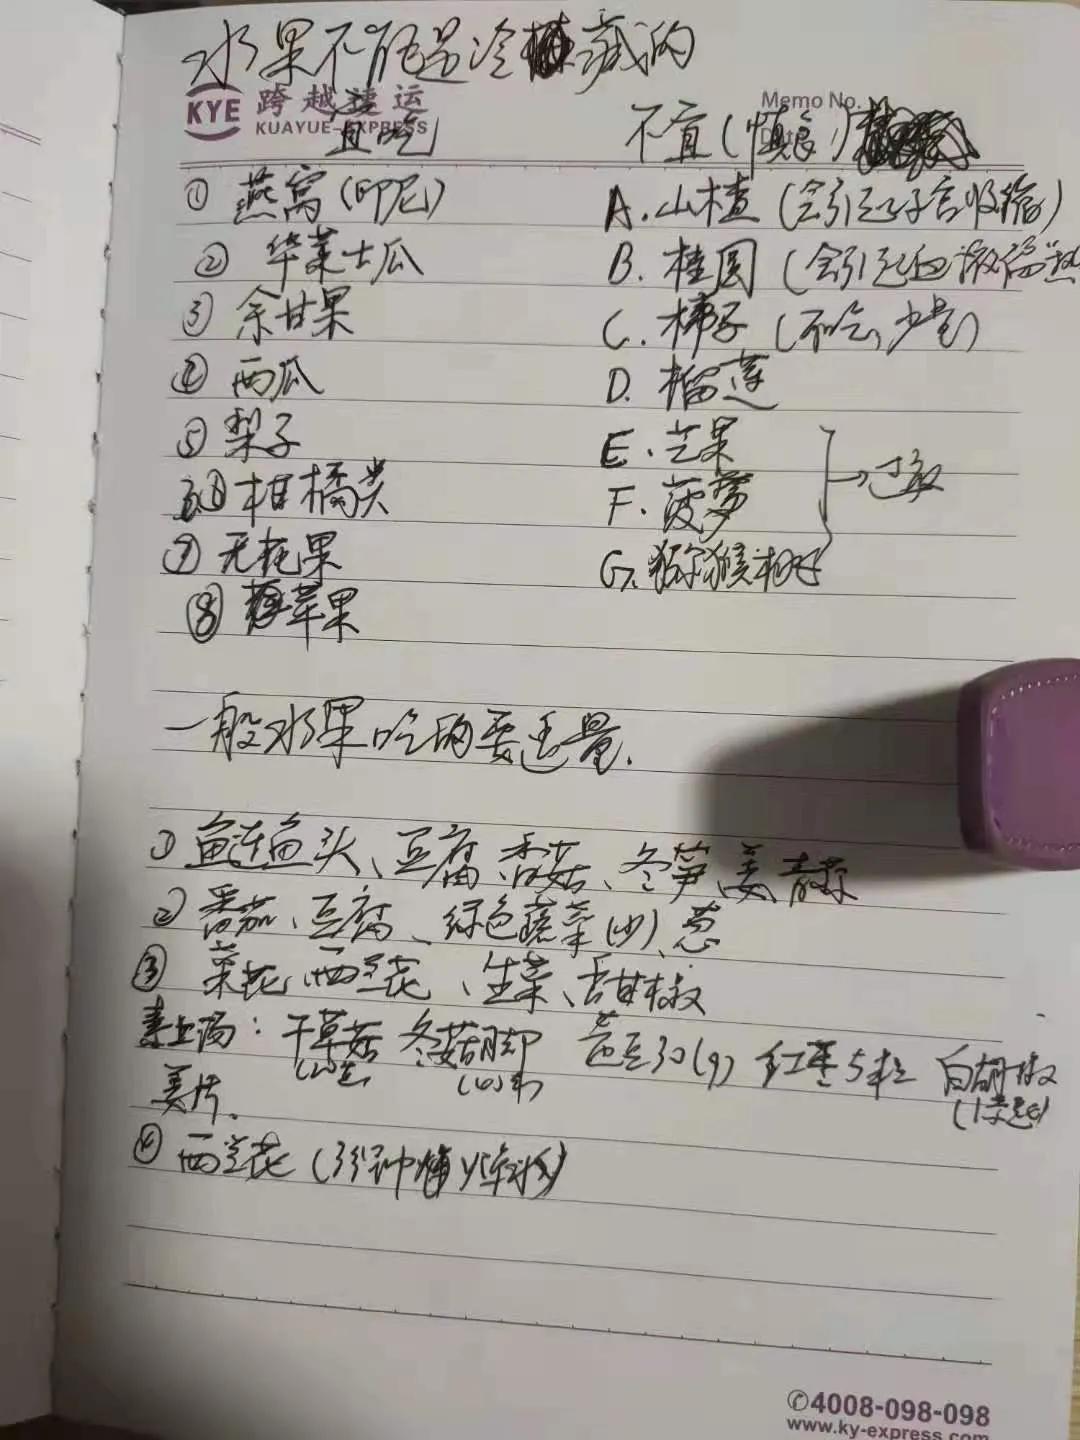 水果不能是冷藏的
KYE 跨越速运 Memo No.
KUAYUE-EXPRESS
宜吃 不宜(慎食)
① 燕窝(印尼) A.山楂(会引起子宫收缩)
② 华莱士瓜 B.桂圆(会引起血液偏热
③ 余甘果 C.柿子(不吃,少量)
④ 西瓜 D.榴莲
⑤ 梨子 E.芒果
柑橘类 F.菠萝 →过敏
⑦ 无花果 G.猕猴桃
⑧ 苹果
一般水果吃的要适量.
① 鲢鱼头、豆腐、香菇、冬笋、姜、青蒜
② 番茄、豆腐、绿色蔬菜(炒)、葱
③ 菜花、西兰花、生菜、甜椒
素上汤:干草菇 冬菇脚 芭豆30(g) 红枣5粒 白胡椒
姜片.
④ 西兰花(3分钟
✆4008-098-098
www.ky-express.com